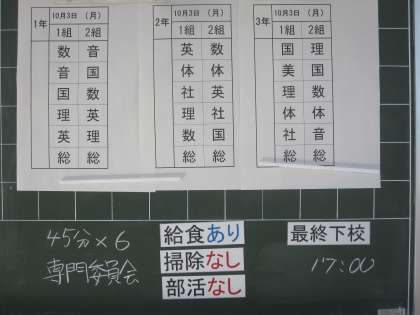 1年 10月3日 (月)
1組 2組
数 音
音 国
国 数
理 英
英 理
総 総
2年 10月3日 (月)
1組 2組
英 数
体 体
社 英
理 社
数 国
総 総
3年 10月3日 (月)
1組 2組
国 理
美 国
理 数
体 体
社 音
総 総
45分×6
専門委員会
給食あり
掃除なし
部活なし
最終下校
17:00